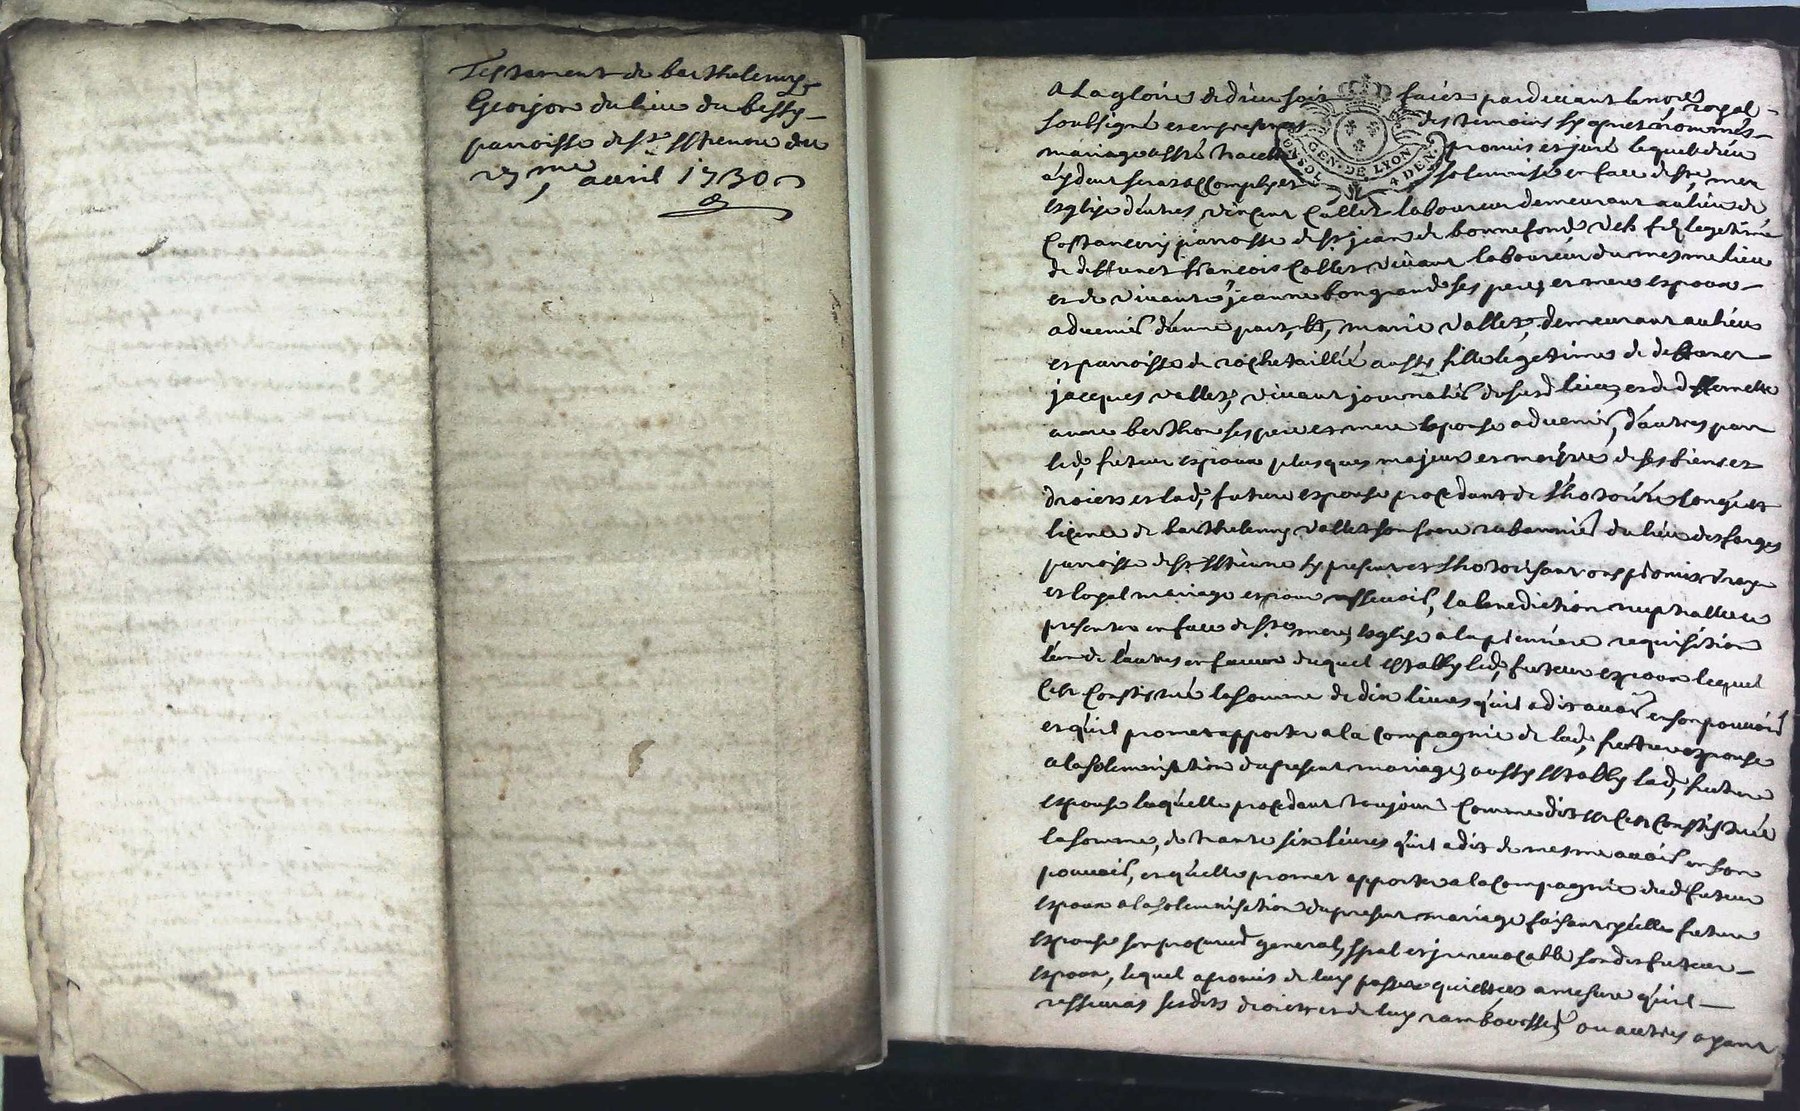 Testament de barthelemy
Georjon du lieu du bessy
parroisse de st Estienne du
avril 1730
A La gloire de dieu soit faict pardevant le no.re royal
soubsigné et en presence des temoins sy apres nommés
mariage a esté traicté promis et juré lequel dieu
aydant serat accomply et solemnisé en face de ste mer
esglize d'entres vincent Collet laboureur demeurant au lieu de
parroisse de st jean de bonnefond, filz legetime
de deffunct francois Collet vivant laboureur du mesme lieu
et de vivante jeanne bongrand ses pere et mere espoux
advenir d'une part, Et, marie vallet, demeurant au lieu
et parroisse de rochetaillée aussy fille legetime de deffunct
jacques vallet, vivant journalier du susd lieu, et de deffuncte
anne berthon ses pere et mere Espouse advenir, d'autres part
led, futeur espoux plus que majeur et maistre de ses biens et
droicts et lad, future espouse procedant de l'hotorité congé et
licence de barthelemy vallet son frere rubannier du lieu des forges
parroisse de st Estienne sy present et l'hotorisant ont promis vray
et loyal mariage et pour Resevoir, la benediction nuptialle ce
presenter en face de ste mere, Esglize a la premiere requisition
l'un de l'autres en faveur duquel Estably led, futeur espoux lequel
c'est Constitué la somme de dix livres qu'il a dit avoir en son pouvoir
et qu'il promet apporter a la Compagnie de lad, future espouse
a la solemnisation du present mariage, aussy Estably lad, future
espouse laquelle procedant toujours Comme dit est c'est Constituée
la somme, de trante six livres qu'il a dit de mesme avoir en son
pouvoir, et qu'elle promet apporter a la Compagnie dud futeur
espoux a la solemnisation du present mariage faisant ycelle future
Espouse son procureur general, spal et jrrevocable sondit futeur
espoux, lequel a promis de luy passer quictances a mesure qu'il
ressevras sesdits droicts et de luy rambourser, ou autres ayant
GEN. DE LYON
4 DEN.